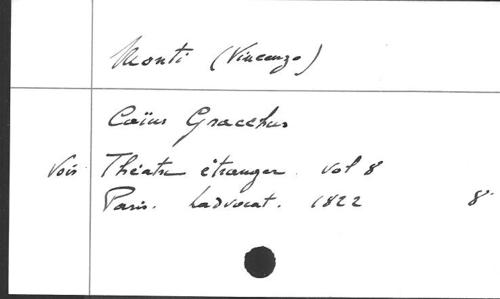 Monti (Vincenzo)
Caïus Gracchus
Voir Théatre étranger. vol 8
Paris. Ladvocat. 1822 8°